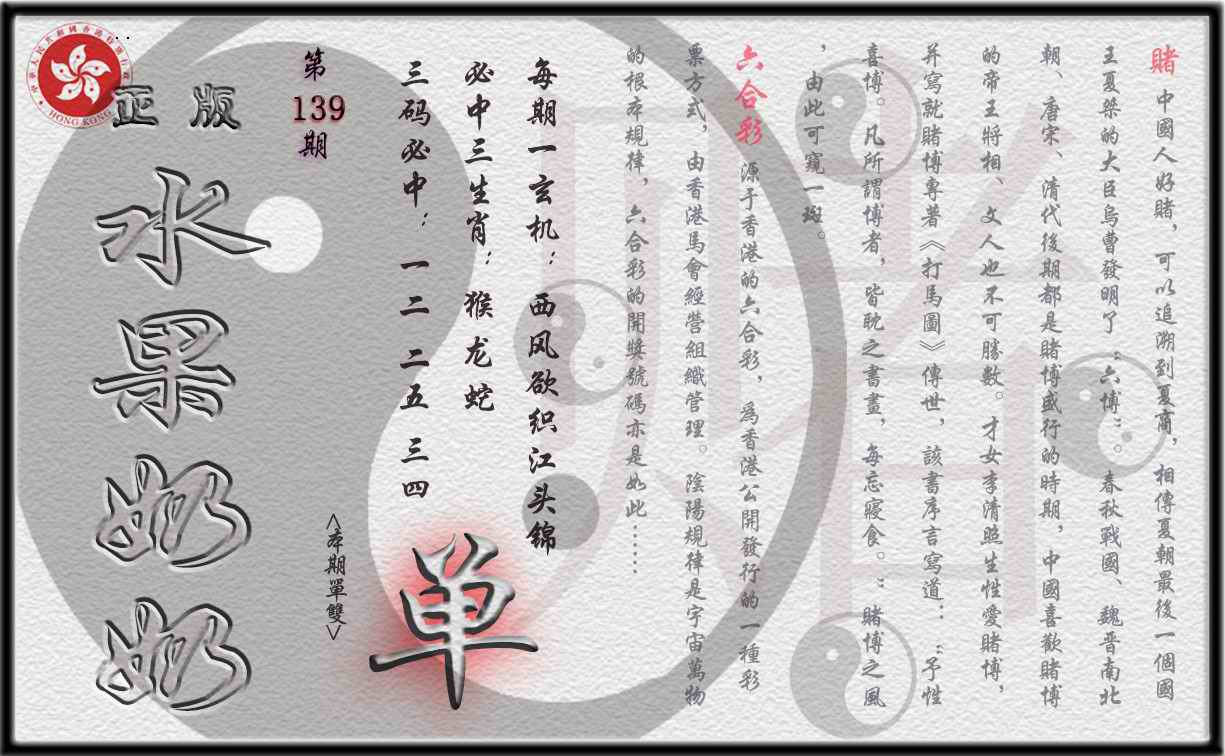 賭 中國人好賭，可以追溯到夏商，相傳夏朝最後一個國
王夏桀的大臣烏曹發明了“六博”。春秋戰國、魏晋南北
朝、唐宋、清代後期都是賭博盛行的時期，中國喜歡賭博
的帝王將相、文人也不可勝數。才女李清照生性愛賭博，
并寫就賭博專著《打馬圖》傳世，該書序言寫道：“予性
喜博。凡所謂博者，皆耽之書晝，每忘寢食。”賭博之風
，由此可窺一斑。
六合彩 源于香港的六合彩，爲香港公開發行的一種彩
票方式，由香港馬會經營組織管理。陰陽規律是宇宙萬物
的根本規律，六合彩的開獎號碼亦是如此……
每期一玄机：西风欲织江头锦
必中三生肖：猴龙蛇
三码必中：一二 二五 三四
单
<本期單雙>
第
139
期
正版
水果奶奶
中華人民共和國香港特別行政區
HONG KONG